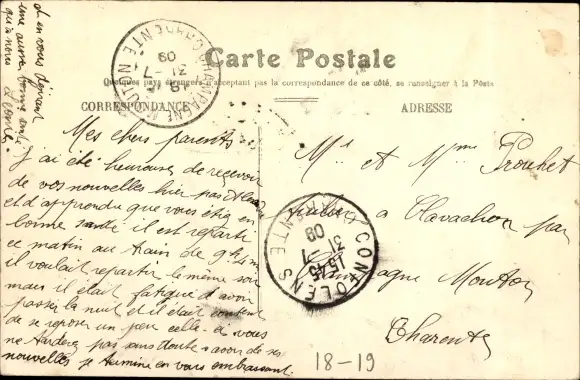 Carte Postale
Quelques pays étrangers n'acceptant pas la correspondance de ce côté, se renseigner à la Poste
CORRESPONDANCE
ADRESSE
Mes chers parents
j'ai été heureuse de recevoir
de vos nouvelles hier pas
et d'apprendre que vous étiez en
bonne santé il est reparti
ce matin au train de 9h
il voulait repartir le même soir
mais il était fatigué d'avoir
passé la nuit et il était content
de se reposer un peu celle-à vous
ne tardera pas sans doute à avoir de ses
nouvelles je termine en vous embrassant
et en vous
une aussi bonne santé
qu'à nous
Mr et Mme Prouhet
à Clavachon par
Mouton
Charente
CHAMPAGNE MOUTON
CHARENTE
18
31 -7
09
CONFOLENS
CHARENTE
15 45
31 -7
09
18-19